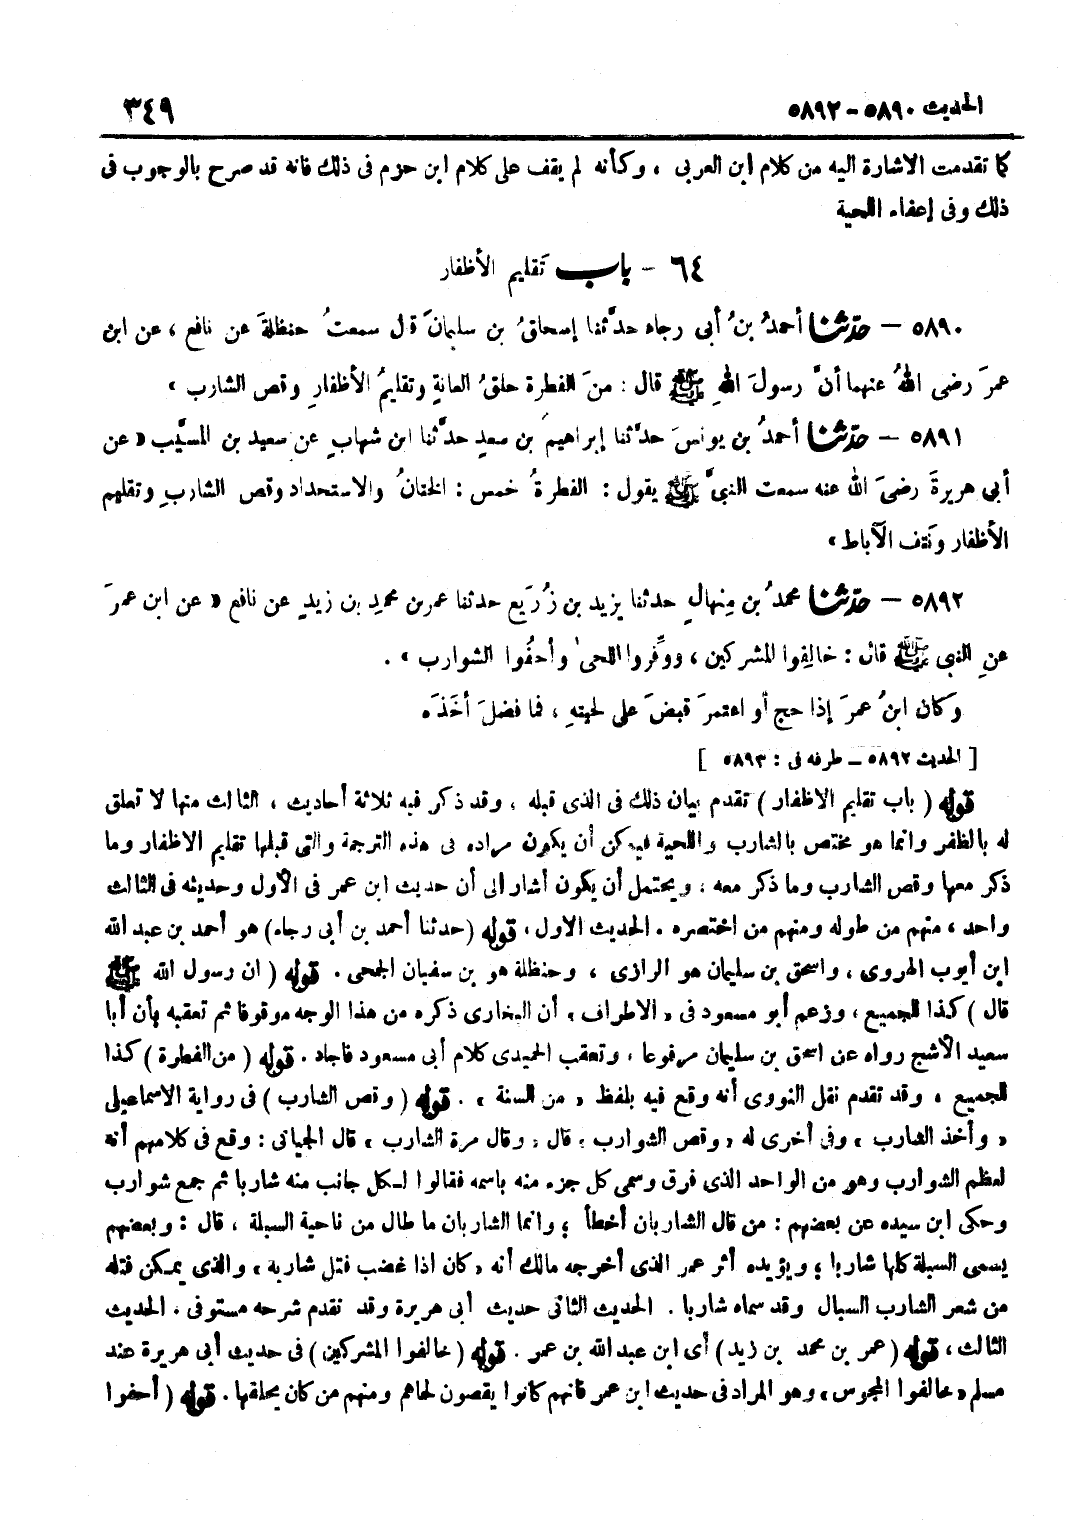 الحديث ٥٨٩٠ - ٥٨٩٢
٣٤٩
كما تقدمت الاشارة اليه من كلام ابن العربى ، وكأنه لم يقف على كلام ابن حزم فى ذلك فانه قد صرح بالوجوب فى
ذلك وفى إعفاء اللحية
٦٤ - باب تَقليم الأظفار
٥٨٩٠ - حدّثنا أحمدُ بنُ أبى رجاء حدَّثنا إسحاقُ بن سليمانَ قال سمعتُ حنظلةَ عن نافع ، عن ابن
عمرَ رضى اللهُ عنهما أنَّ رسولَ اللهِ ﷺ قال : منَ الفطرة حلقُ العانةِ وتقليمُ الأظفارِ وقص الشارب »
٥٨٩١ - حدّثنا أحمدُ بن يونسَ حدَّثنا إبراهيمُ بن سعدٍ حدَّثنا ابن شهابٍ عن سعيد بن المسيَّب « عن
أبى هريرةَ رضىَ الله عنه سمعت النبىَّ ﷺ يقول : الفطرةُ خمس : الختانُ والاستحداد وقص الشاربِ وتقليم
الأظفار ونَتف الآباط »
٥٨٩٢ - حدّثنا محمدُ بن مِنهالٍ حدثنا يزيد بن زُرَيع حدثنا عمر بن محمدِ بن زيدٍ عن نافع « عن ابن عمرَ
عنِ النبى ﷺ قال : خالِفوا المشركين ، ووفِّروا اللحىٰ وأحفُوا الشوارب » .
وَكان ابنُ عمرَ إذا حج أو اعتمرَ قبضَ على لحيتهِ ، فما فضلَ أخَذَه
[ الحديث ٥٨٩٢ - طرفه فى : ٥٨٩٣ ]
قوله ( باب تقليم الاظفار ) تقدم بيان ذلك فى الذى قبله ، وقد ذكر فيه ثلاثة أحاديث ، الثالث منها لا تعلق
له بالظفر وانما هو مختص بالشارب واللحية فيمكن أن يكون مراده فى هذه الترجمة والتى قبلها تقليم الاظفار وما
ذكر معها وقص الشارب وما ذكر معه ، ويحتمل أن يكون أشار الى أن حديث ابن عمر فى الأول وحديثه فى الثالث
واحد ، منهم من طوله ومنهم من اختصره . الحديث الاول ، قوله (حدثنا أحمد بن أبى رجاء) هو أحمد بن عبد الله
ابن أيوب الهروى ، واسحق بن سليمان هو الرازى ، وحنظلة هو بن سفيان الجمحى . قوله ( ان رسول الله ﷺ
قال ) كذا للجميع ، وزعم أبو مسعود فى « الاطراف » أن البخارى ذكره من هذا الوجه موقوفا ثم تعقبه بأن أبا
سعيد الأشج رواه عن اسحق بن سليمان مرفوعا ، وتعقب الحميدى كلام أبى مسعود فاجاد . قوله ( من الفطرة ) كذا
للجميع ، وقد تقدم نقل النووى أنه وقع فيه بلفظ « من السنة » . قوله ( وقص الشارب ) فى رواية الاسماعيلى
« وأخذ الشارب » وفى أخرى له « وقص الشوارب » قال « وقال مرة الشارب » قال الجيانى : وقع فى كلامهم أنه
لعظم الشوارب وهو من الواحد الذى فرق وسمى كل جزء منه باسمه فقالوا لكل جانب منه شاربا ثم جمع شوارب
وحكى ابن سيده عن بعضهم : من قال الشاربان أخطأ ؛ وانما الشاربان ما طال من ناحية السبلة ، قال : وبعضهم
يسمى السبلة كلها شاربا ؛ ويؤيده أثر عمر الذى أخرجه مالك أنه « كان اذا غضب فتل شاربه » والذى يمكن فتله
من شعر الشارب السبال وقد سماه شاربا . الحديث الثانى حديث أبى هريرة وقد تقدم شرحه مستوفى . الحديث
الثالث ، قوله ( عمر بن محمد بن زيد) أى ابن عبد الله بن عمر . قوله ( خالفوا المشركين ) فى حديث أبى هريرة عند
مسلم « خالفوا المجوس » وهو المراد فى حديث ابن عمر فانهم كانوا يقصون لحاهم ومنهم من كان يحلقها . قوله ( أحفوا